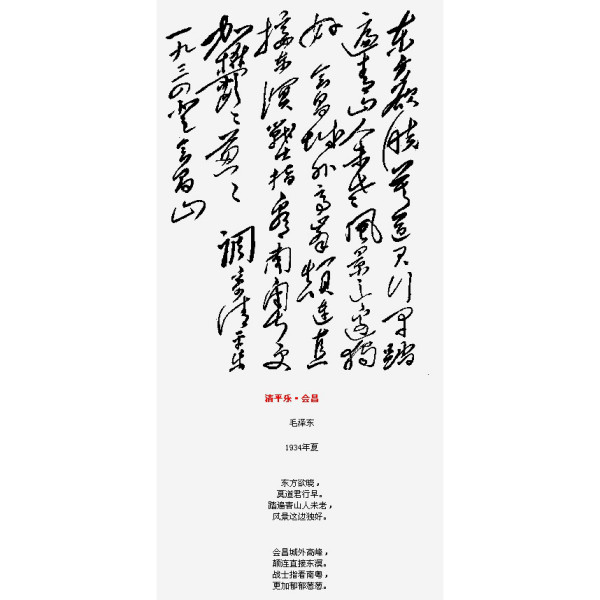 东方欲晓莫道君行早踏
遍青山人未老风景这边独
好会昌城外高峰颠连直
接东溟战士指看南粤更
加郁郁葱葱 调寄清平乐
一九三四登会昌山
清平乐·会昌
毛泽东
1934年夏
东方欲晓，
莫道君行早。
踏遍青山人未老，
风景这边独好。
会昌城外高峰，
颠连直接东溟。
战士指看南粤，
更加郁郁葱葱。